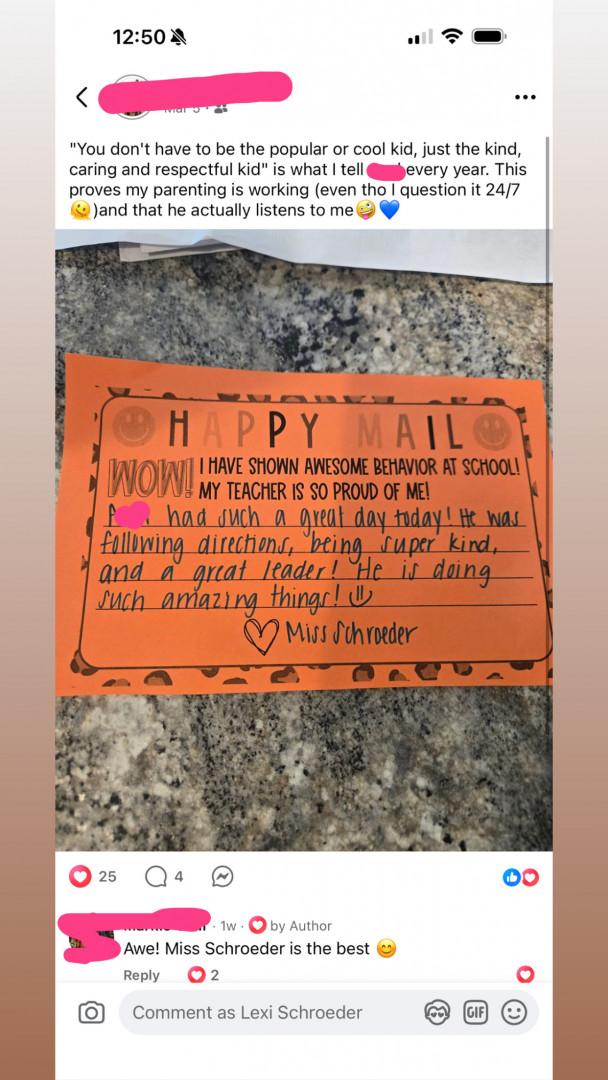 12:50
"You don't have to be the popular or cool kid, just the kind,
caring and respectful kid" is what I tell every year. This
proves my parenting is working (even tho I question it 24/7
🫠)and that he actually listens to me🤪💙
HAPPY MAIL
WOW! I HAVE SHOWN AWESOME BEHAVIOR AT SCHOOL!
MY TEACHER IS SO PROUD OF ME!
had such a great day today! He was
following directions, being super kind,
and a great leader! He is doing
such amazing things!
Miss Schroeder
25 4
· 1w · by Author
Awe! Miss Schroeder is the best 😊
Reply 2
Comment as Lexi Schroeder GIF